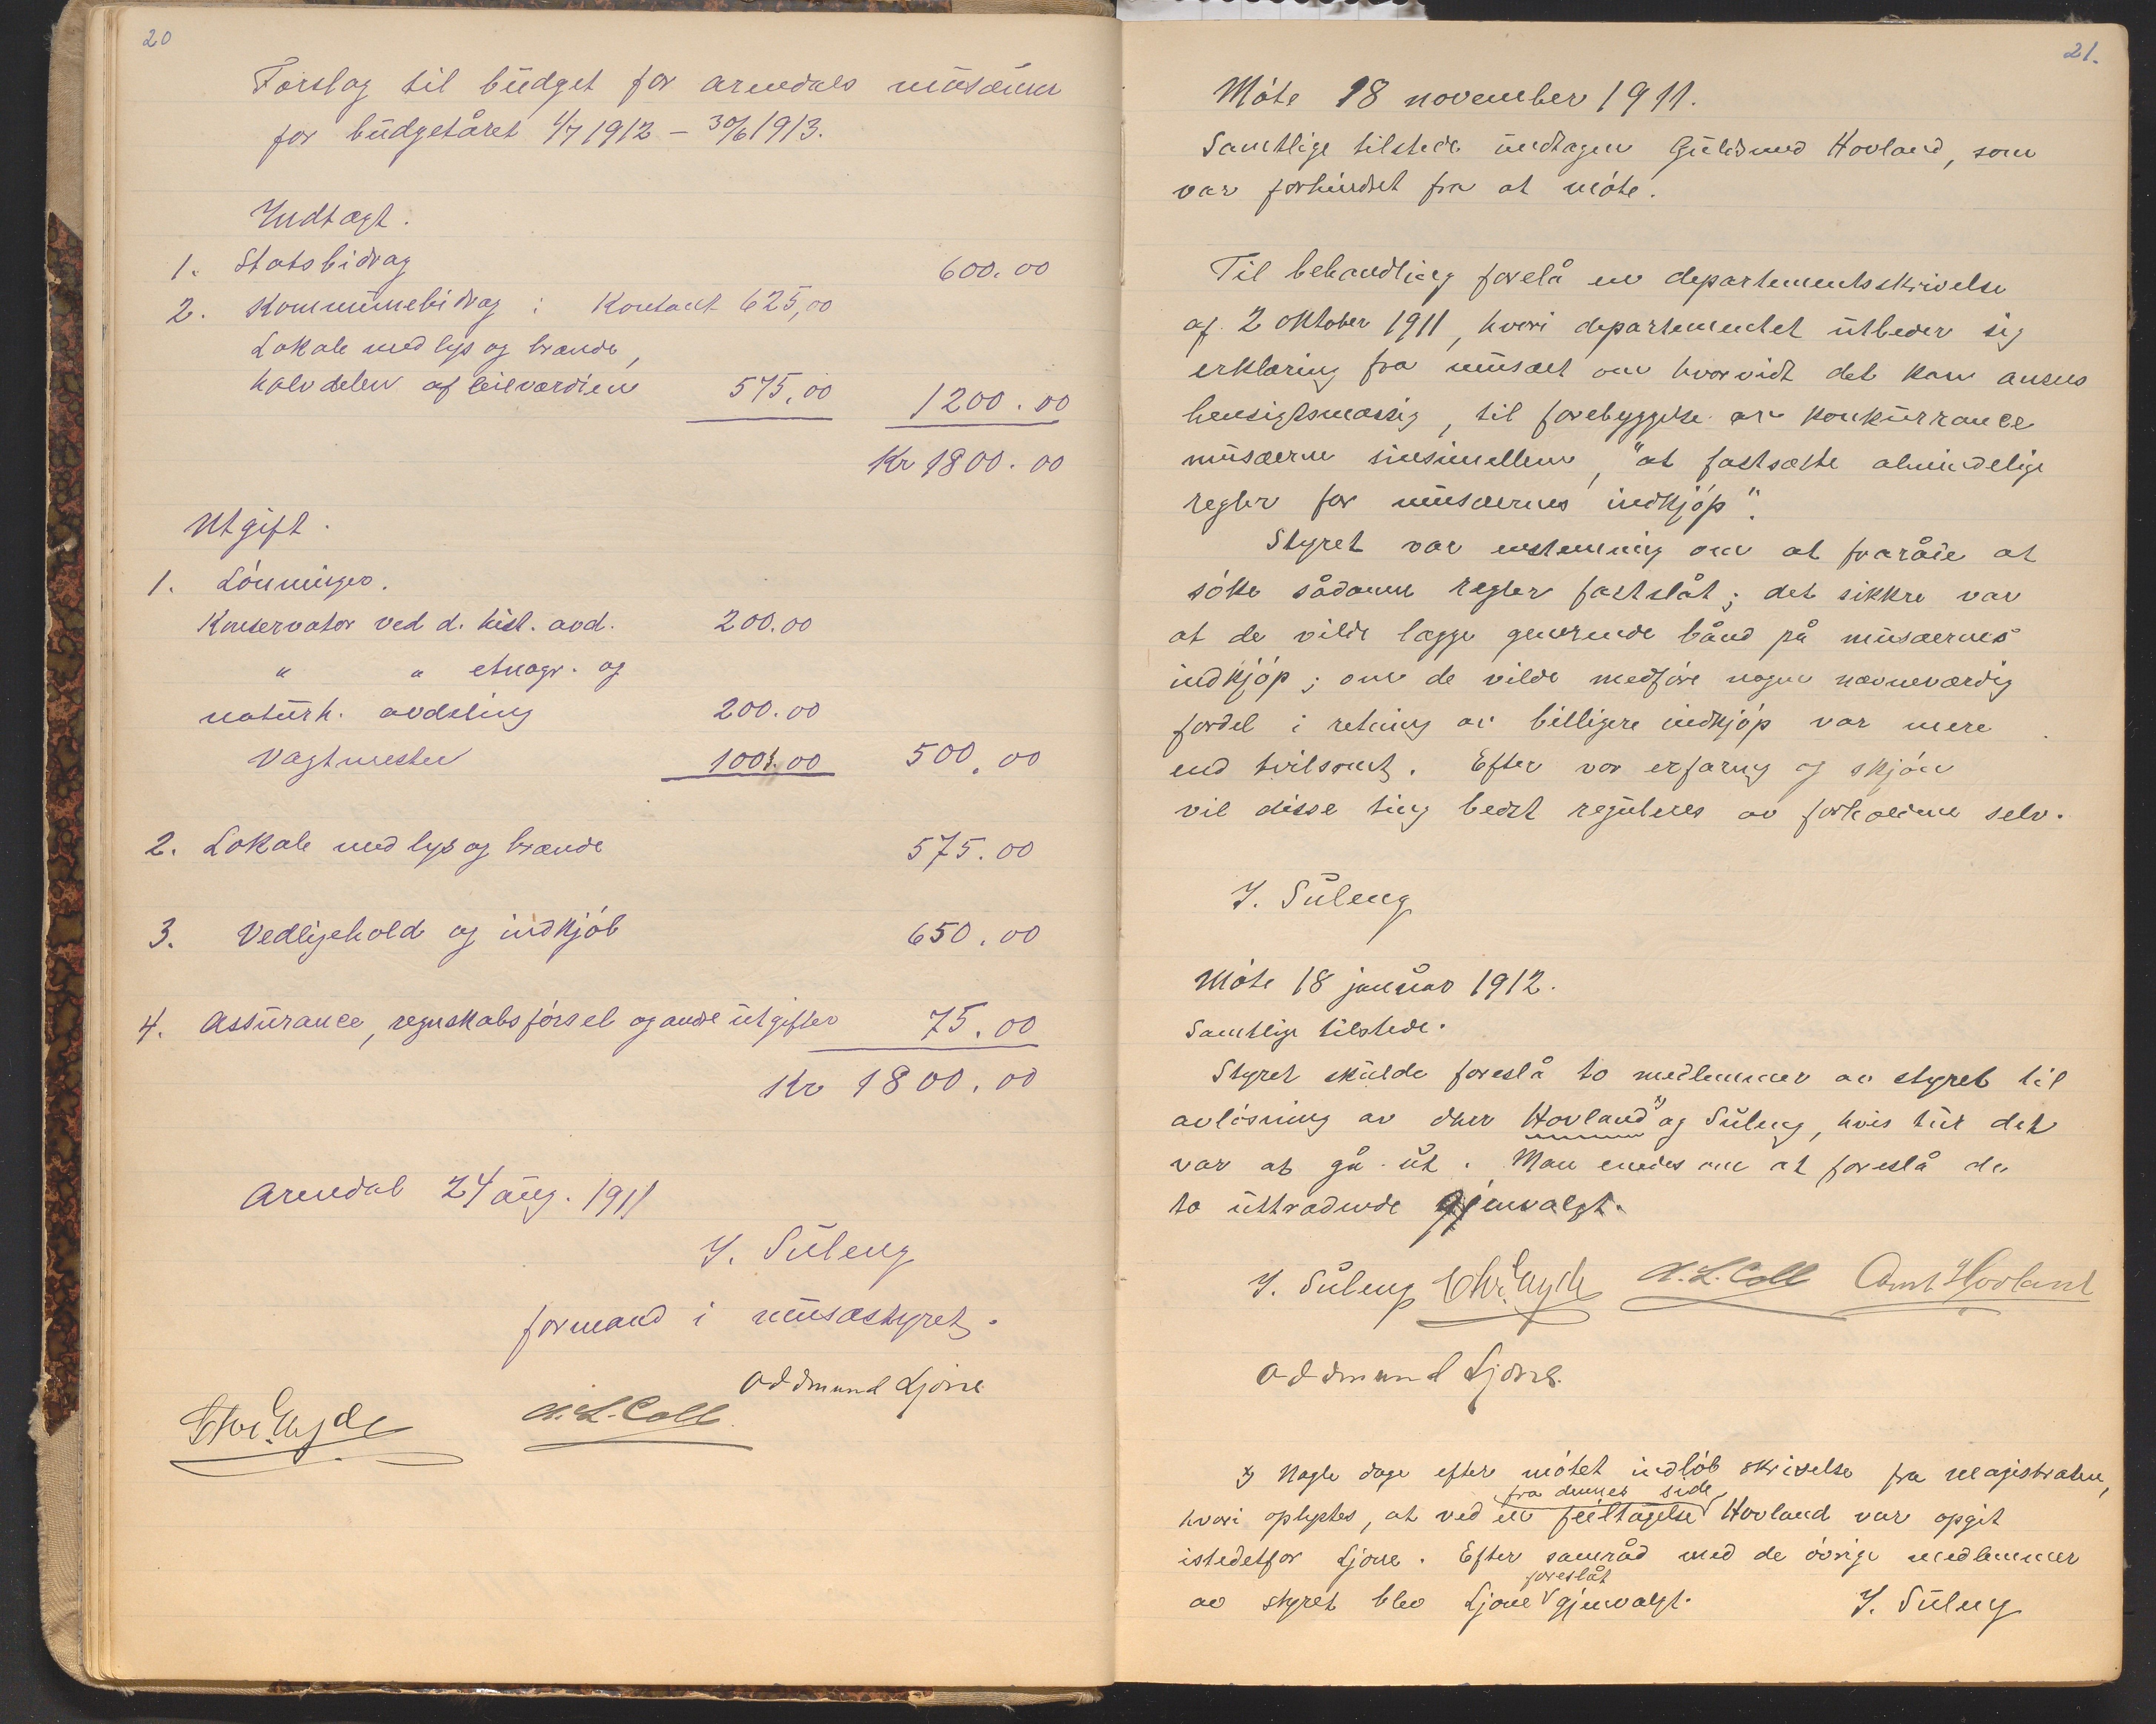 20
Forslag til budget for Arendals musæum
for budgetåret 1/7 1912 - 30/6 1913.
Indtægt.
1. Statsbidrag 600.00
2. Kommunebidrag: Kontant 625,00
Lokale med lys og brænde,
halvdelen af leieværdien 575,00 1200.00
Kr 1800.00
Utgift.
1. Lönninger.
Konservator ved d. hist. avd. 200.00
" " etnogr. og
naturh. avdeling 200.00
Vagtmester 100.00 500.00
2. Lokale med lys og brænde 575.00
3. Vedligehold og indkjöb 650.00
4. Assurance, regnskabsförsel og andre utgifter 75.00
Kr 1800.00
Arendal 24 aug. 1911
J. Suleng
formand i musæstyret.
Oddmund Ljone
A. L. Coll
21.
Möte 18 november 1911.
Samtlige tilstede undtagen Guldsmed Hovland, som
var forhindret fra at möte.
Til behandling forelå en departementsskrivelse
af 2 oktober 1911, hvori departementet utbeder sig
erklæring fra musæet om hvorvidt det kan ansees
hensigtsmæssig, til forebyggelse av konkurrance
musæerne sinsimellem, "at fastsætte almindelige
regler for musæernes indkjöp".
Styret var enstemmig om at fraråde at
söke sådanne regler fastslåt; det sikkre var
at de vilde lægge generende bånd på musæernes
indkjöp; om de vilde medföre nogen nævneværdig
fordel i retning av billigere indkjöp var mere
end tvilsomt. Efter vor erfaring og skjön
vil disse ting bedst reguleres av forholdene selv.
J. Suleng
Möte 18 januar 1912.
Samtlige tilstede.
Styret skulde foreslå to medlemmer av styret til
avlösning av dhrr Hovland x) og Suleng, hvis tur det
var at gå ut. Man enedes om at foreslå de
to uttrædende gjenvalgt.
J. Suleng A. L. Coll Hovland
Oddmund Ljone.
x) Nogle dage efter mötet indlöb skrivelse fra magistraten,
fra dennes side
hvori oplystes, at ved en feiltagelse Hovland var opgit
istedetfor Ljone. Efter samråd med de övrige medlemmer
foreslåt
av styret blev Ljone gjenvalgt. J. Suleng